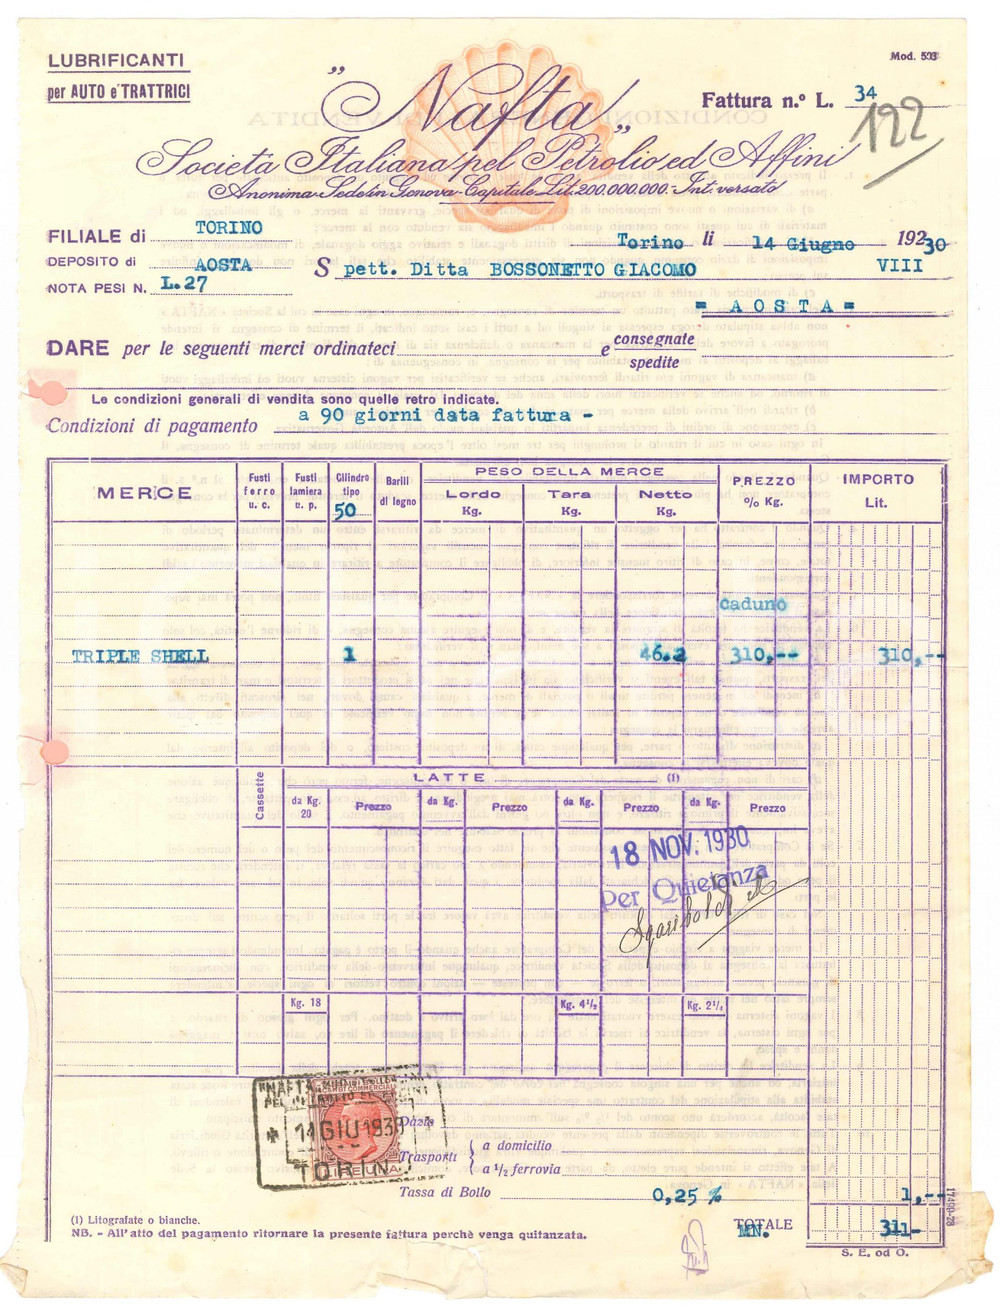 LUBRIFICANTI
per AUTO e TRATTRICI
Mod. 503
"Nafta"
Fattura n.º L. 34
122
Società Italiana pel Petrolio ed Affini
Anonima-Sede in Genova-Capitale Lit. 200.000.000. Int. versato
FILIALE di TORINO
Torino li 14 Giugno 1930
DEPOSITO di AOSTA
VIII
Spett. Ditta BOSSONETTO GIACOMO
NOTA PESI N. L.27
= A O S T A =
DARE per le seguenti merci ordinateci e consegnate
spedite
Le condizioni generali di vendita sono quelle retro indicate.
Condizioni di pagamento a 90 giorni data fattura -
MERCE Fusti ferro u. c. Fusti lamiera u. p. Cilindro tipo 50 Barili di legno PESO DELLA MERCE PREZZO % Kg. IMPORTO Lit.
Lordo Kg. Tara Kg. Netto Kg.
caduno
TRIPLE SHELL 1 46.2 310,-- 310,--
Cassette LATTE (I)
da Kg. 20 Prezzo da Kg. Prezzo da Kg. Prezzo da Kg. Prezzo
18 NOV. 1930
Per Quietanza
Kg. 18 Kg. 4½ Kg. 2½
"NAFTA"
14 GIU 1930
TORINO
UNA LIRA
Dazio
Trasporti { a domicilio
a ½ ferrovia
Tassa di Bollo 0,25 % 1,--
17499-28
(I) Litografate o bianche.
TOTALE
MN. 311-
NB. - All'atto del pagamento ritornare la presente fattura perchè venga quitanzata.
S. E. od O.